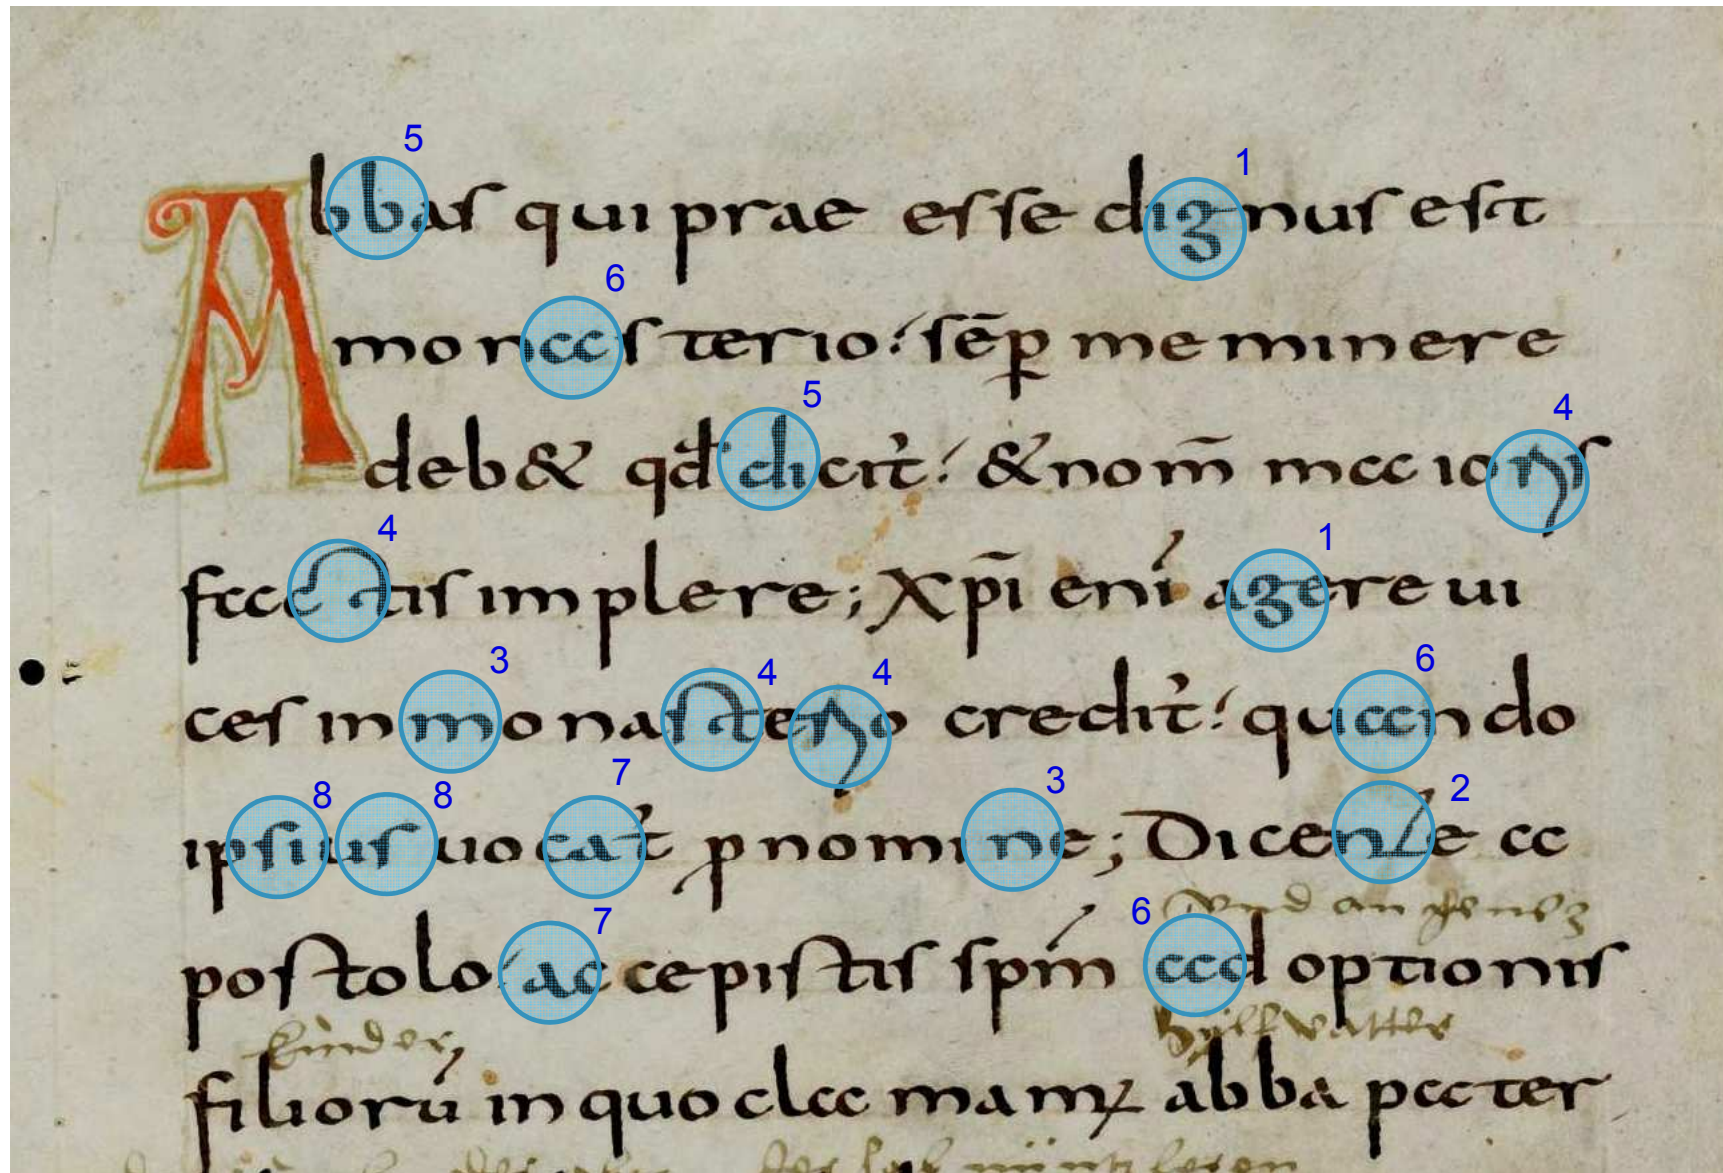 5 1
Abbas qui prae esse dignus est
6
monasterio: sēp meminere
5 4
deb& qđ dicit̉: & nom̄ maioris
4 1
factis implere; Xp̄i eni̍ agere ui
3 4 4 6
ces in monasterio credit̉: quando
8 8 7 3 2
ipsius uocat̉ ꝓnomine; Dicente a
7 6
postolo accepistis spm̍ adoptionis
kinder vatter
filiorū in quo clamamꝰ abba pater